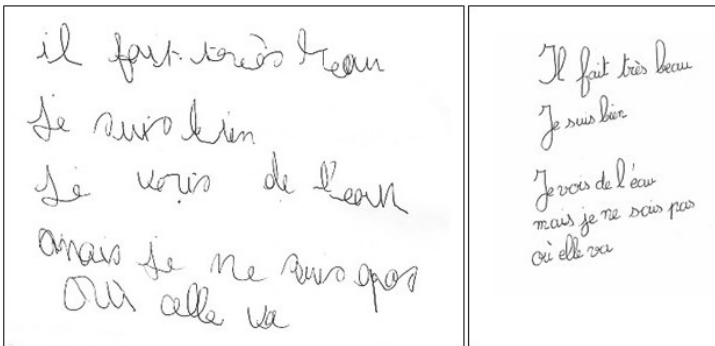 il fait très beau
je suis bien
je vois de l'eau
mais je ne sais pas
où elle va
Il fait très beau
Je suis bien
Je vois de l'éau
mais je ne sais pas
où elle va